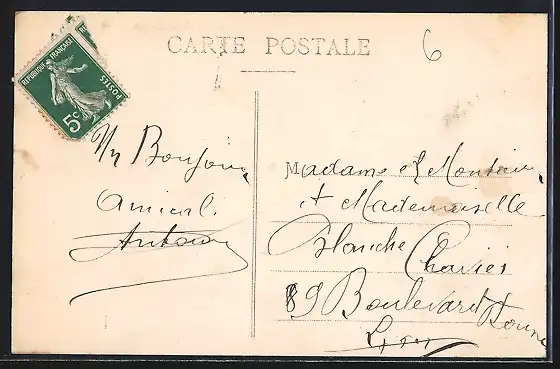 CARTE POSTALE
6
REPUBLIQUE FRANÇAISE
POSTES
5c
Un Bonjour
amical
Antoine
Madame & Monsieur
et Mademoiselle
Blanche
89 Boulevard
Lyon